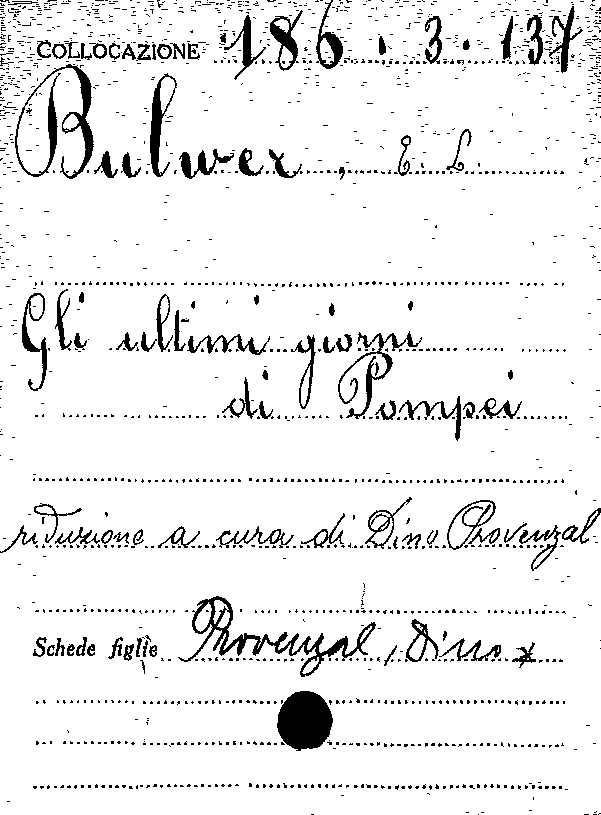 COLLOCAZIONE 186.3.137
Bulwer, E. L.
Gli ultimi giorni
di Pompei
riduzione a cura di Dino Provenzal
Schede figlie Provenzal, Dino x